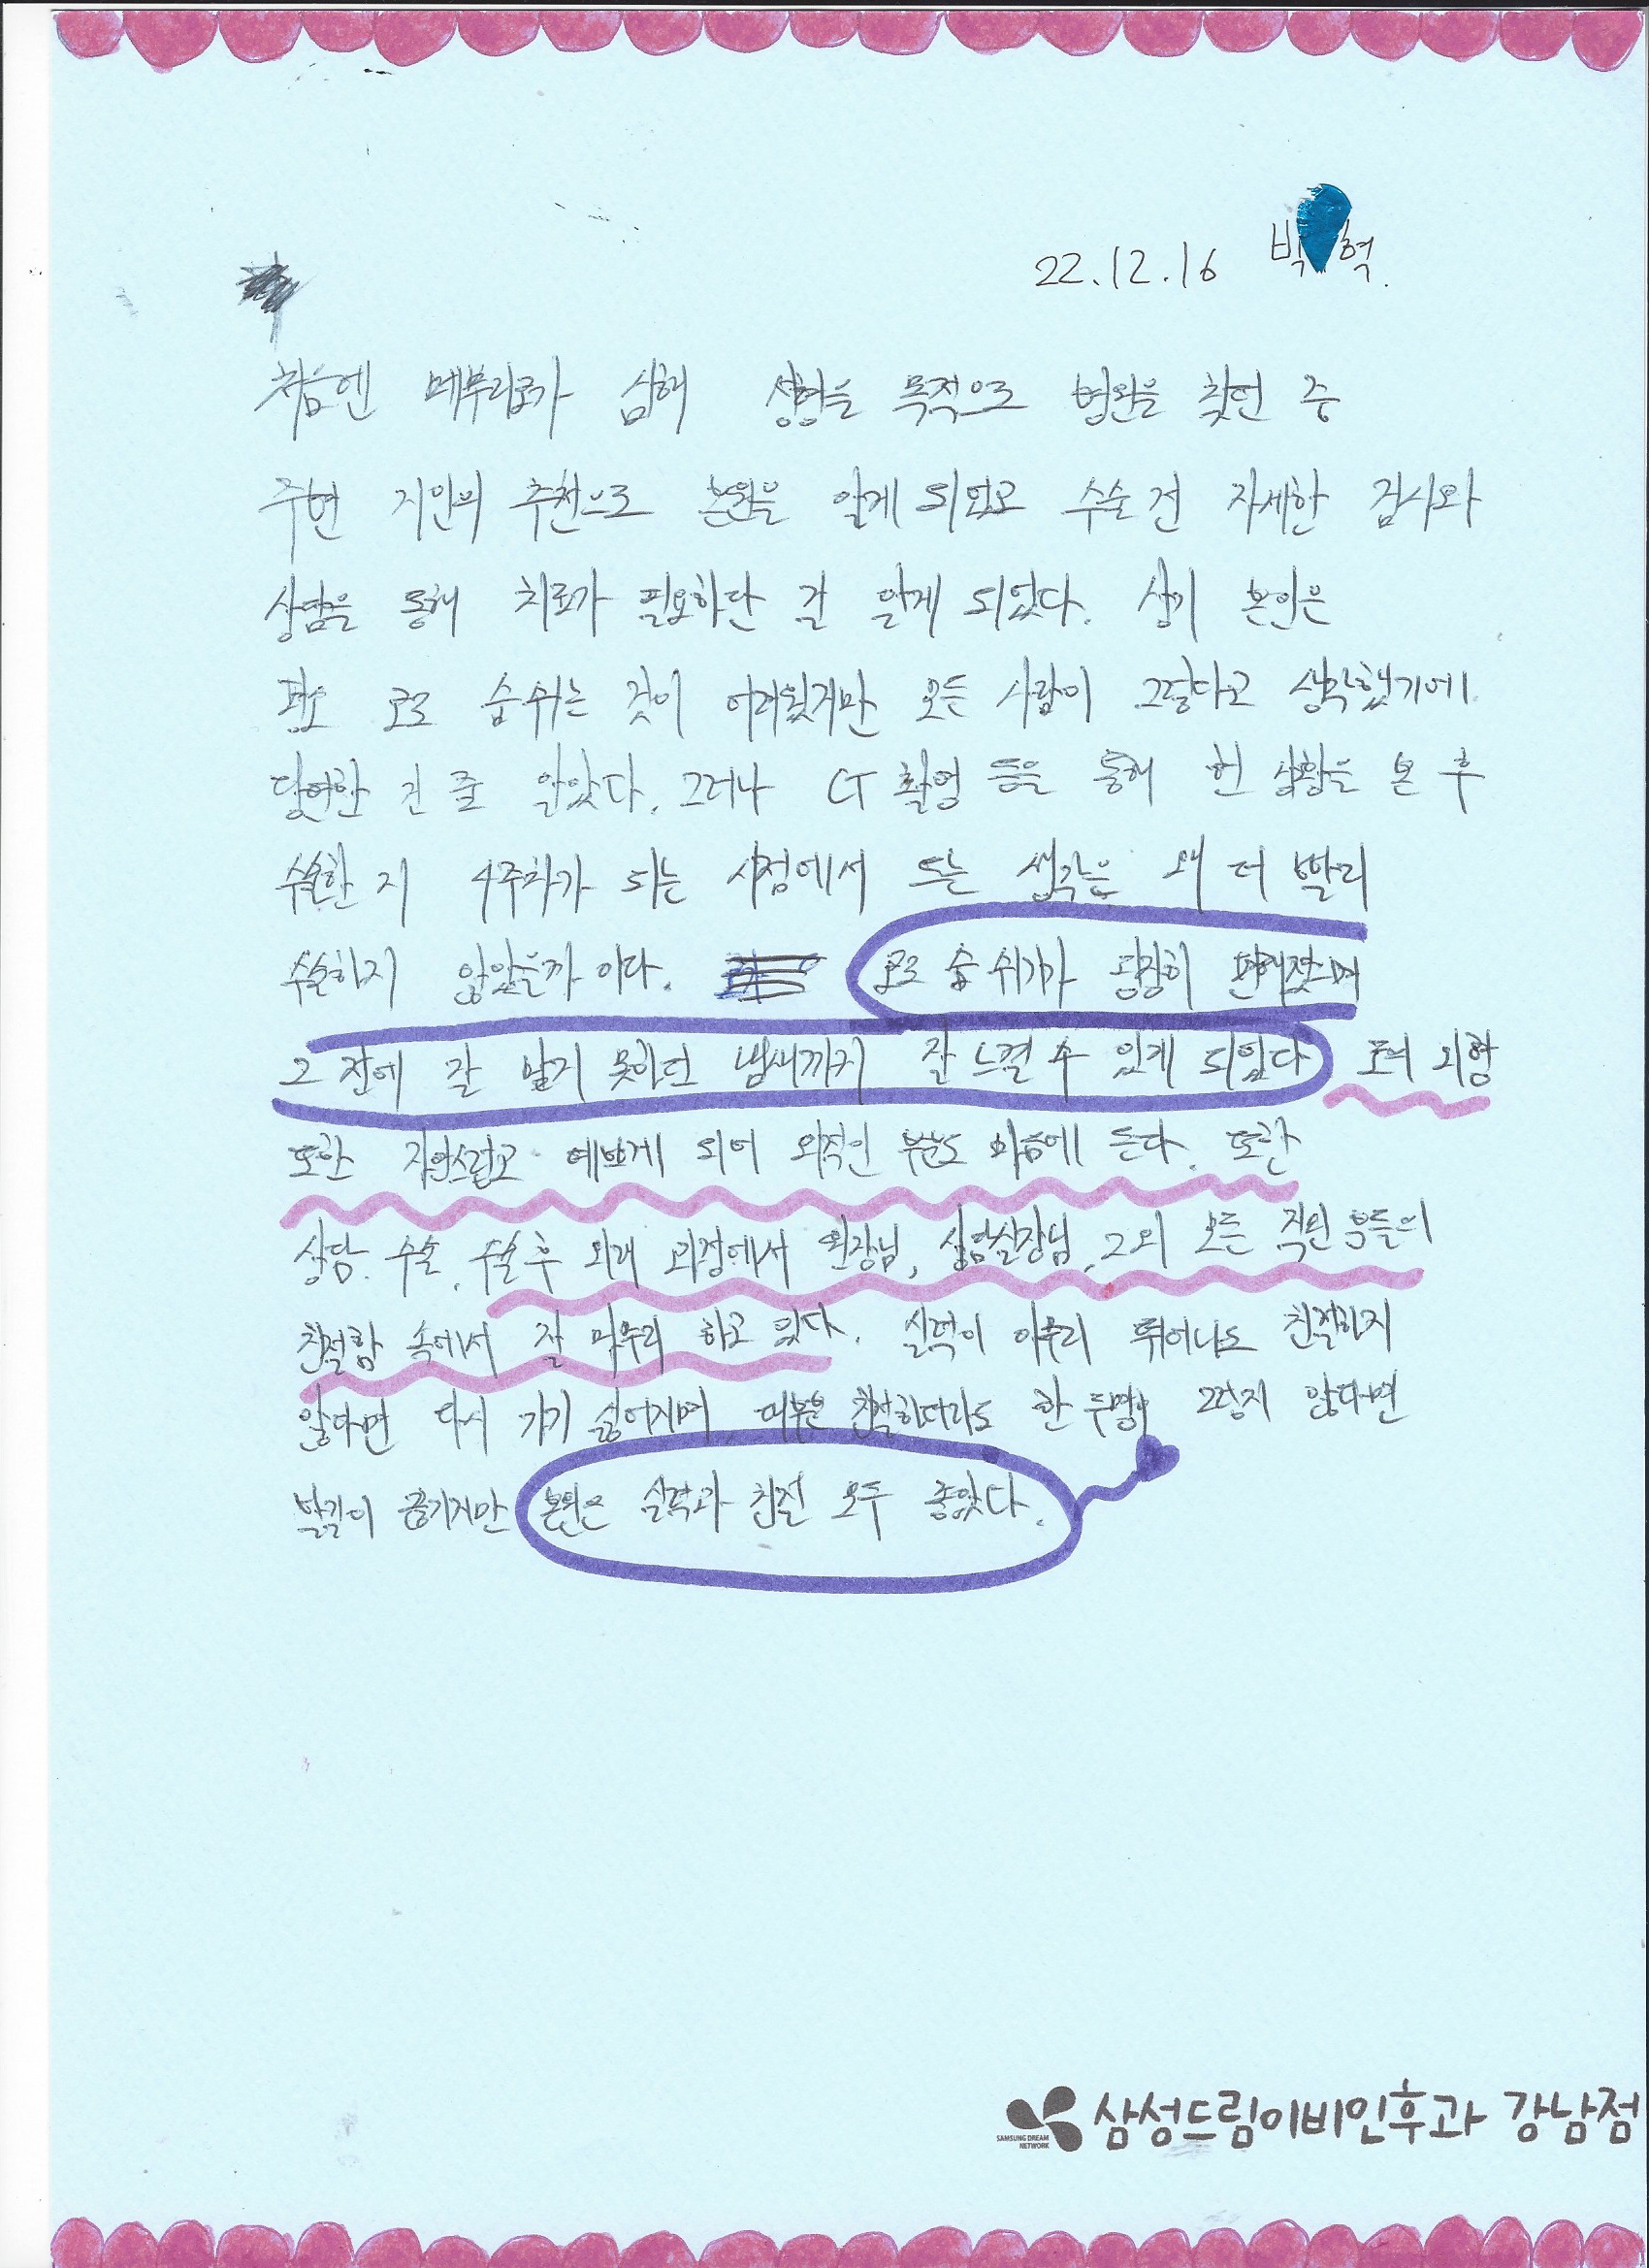 22.12.16 박 혁.
처음엔 메부리코가 심해 성형을 목적으로 병원을 찾던 중
주변 지인의 추천으로 본원을 알게 되었고 수술 전 자세한 검사와
상담을 통해 치료가 필요하단 걸 알게 되었다. 상기 본인은
평소 코로 숨쉬는 것이 어려웠지만 모든 사람이 그렇다고 생각했기에
당연한 건 줄 알았다. 그러나 CT 촬영 등을 통해 현 상황을 본 후
수술한 지 4주차가 되는 시점에서 드는 생각은 왜 더 빨리
수술하지 않았을까 이다. 코로 숨 쉬기가 굉장히 편해졌으며
그 전에 잘 맡지 못하던 냄새까지 잘 느낄 수 있게 되었다 코의 외형
또한 자연스럽고 예쁘게 되어 외적인 부분도 마음에 든다. 또한
상담. 수술. 수술 후 외래 과정에서 원장님, 실장님, 그 외 모든 직원 분들의
친절함 속에서 잘 마무리 하고 있다. 실력이 아무리 뛰어나도 친절하지
않다면 다시 가기 싫어지며, 대부분 친절하더라도 한 두명이 그렇지 않다면
발길이 끊기지만 본원은 실력과 친절 모두 좋았다.
SAMSUNG DREAM NETWORK 삼성드림이비인후과 강남점